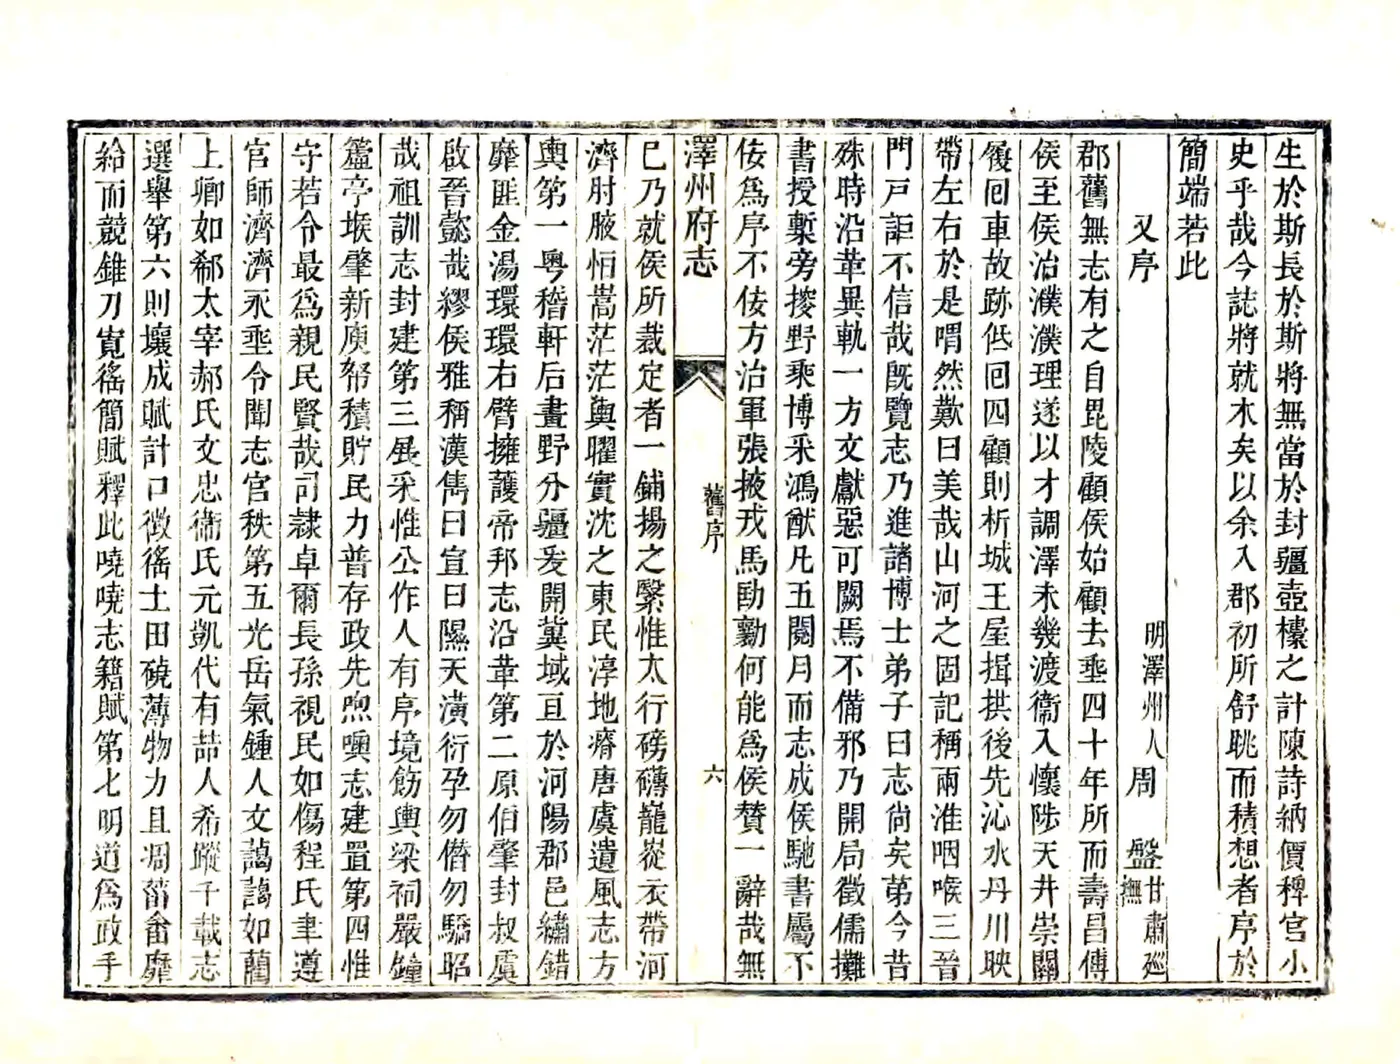 生於斯長於斯將無當於封疆壺櫜之計陳詩納價稗官小
史乎哉今誌將就木矣以余入郡初所舒眺而積想者序於
簡端若此
又序
明澤州人周盤甘肅廵撫
郡舊無志有之自毘陵顧侯始顧去埀四十年所而壽昌傅
侯至侯治濮濮理遂以才調澤未幾渡衞入懷陟天井崇關
履囘車故跡低囘四顧則析城王屋揖拱後先沁水丹川映
帶左右於是喟然歎曰美哉山河之固記稱兩淮咽喉三晉
門戸詎不信哉旣覽志乃進諸博士弟子曰志尙矣苐今昔
殊時沿革異軌一方文獻惡可闕焉不備邪乃開局徵儒攤
書授槧旁搜野乘博采鴻猷凡五閱月而志成侯馳書屬不
佞爲序不佞方治軍張掖戎馬劻勷何能爲侯贊一辭哉無
澤州府志
舊序
六
已乃就侯所裁定者一鋪揚之繄惟太行磅礴巃嵸衣帶河
濟肘腋恒嵩茫茫輿曜實沈之東民淳地瘠唐虞遺風志方
輿第一粤稽軒后畫野分疆爰開冀域亘於河陽郡邑繡錯
靡匪金湯環環右臂擁護帝邦志沿革第二原伯肇封叔虞
啟晉懿哉繆侯雅稱漢雋曰宣曰隰天潢衍孕勿僭勿驕昭
哉祖訓志封建第三展采惟公作人有序境飭輿梁祠嚴鐘
簴亭堠肇新庾帑積貯民力普存政先喣噢志建置第四惟
守若令最爲親民賢哉司隷卓爾長孫視民如傷程氏聿遵
官師濟濟永埀令聞志官秩第五光岳氣鍾人文藹藹如藺
上卿如郗太宰郝氏文忠衞氏元凱代有喆人希蹤千載志
選舉第六則壤成賦計口徵徭土田磽薄物力且凋菑畬靡
給而競錐刀寬徭簡賦釋此嘵嘵志籍賦第七明道爲政手